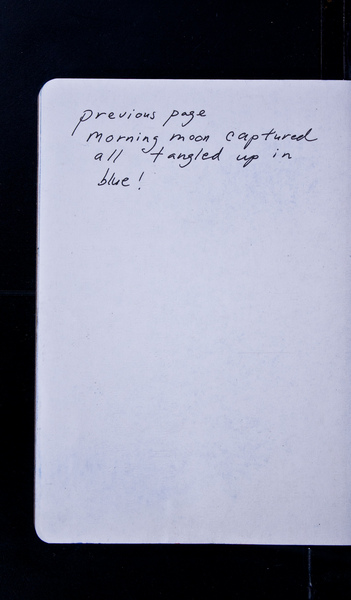 previous page
morning moon captured
all tangled up in
blue!